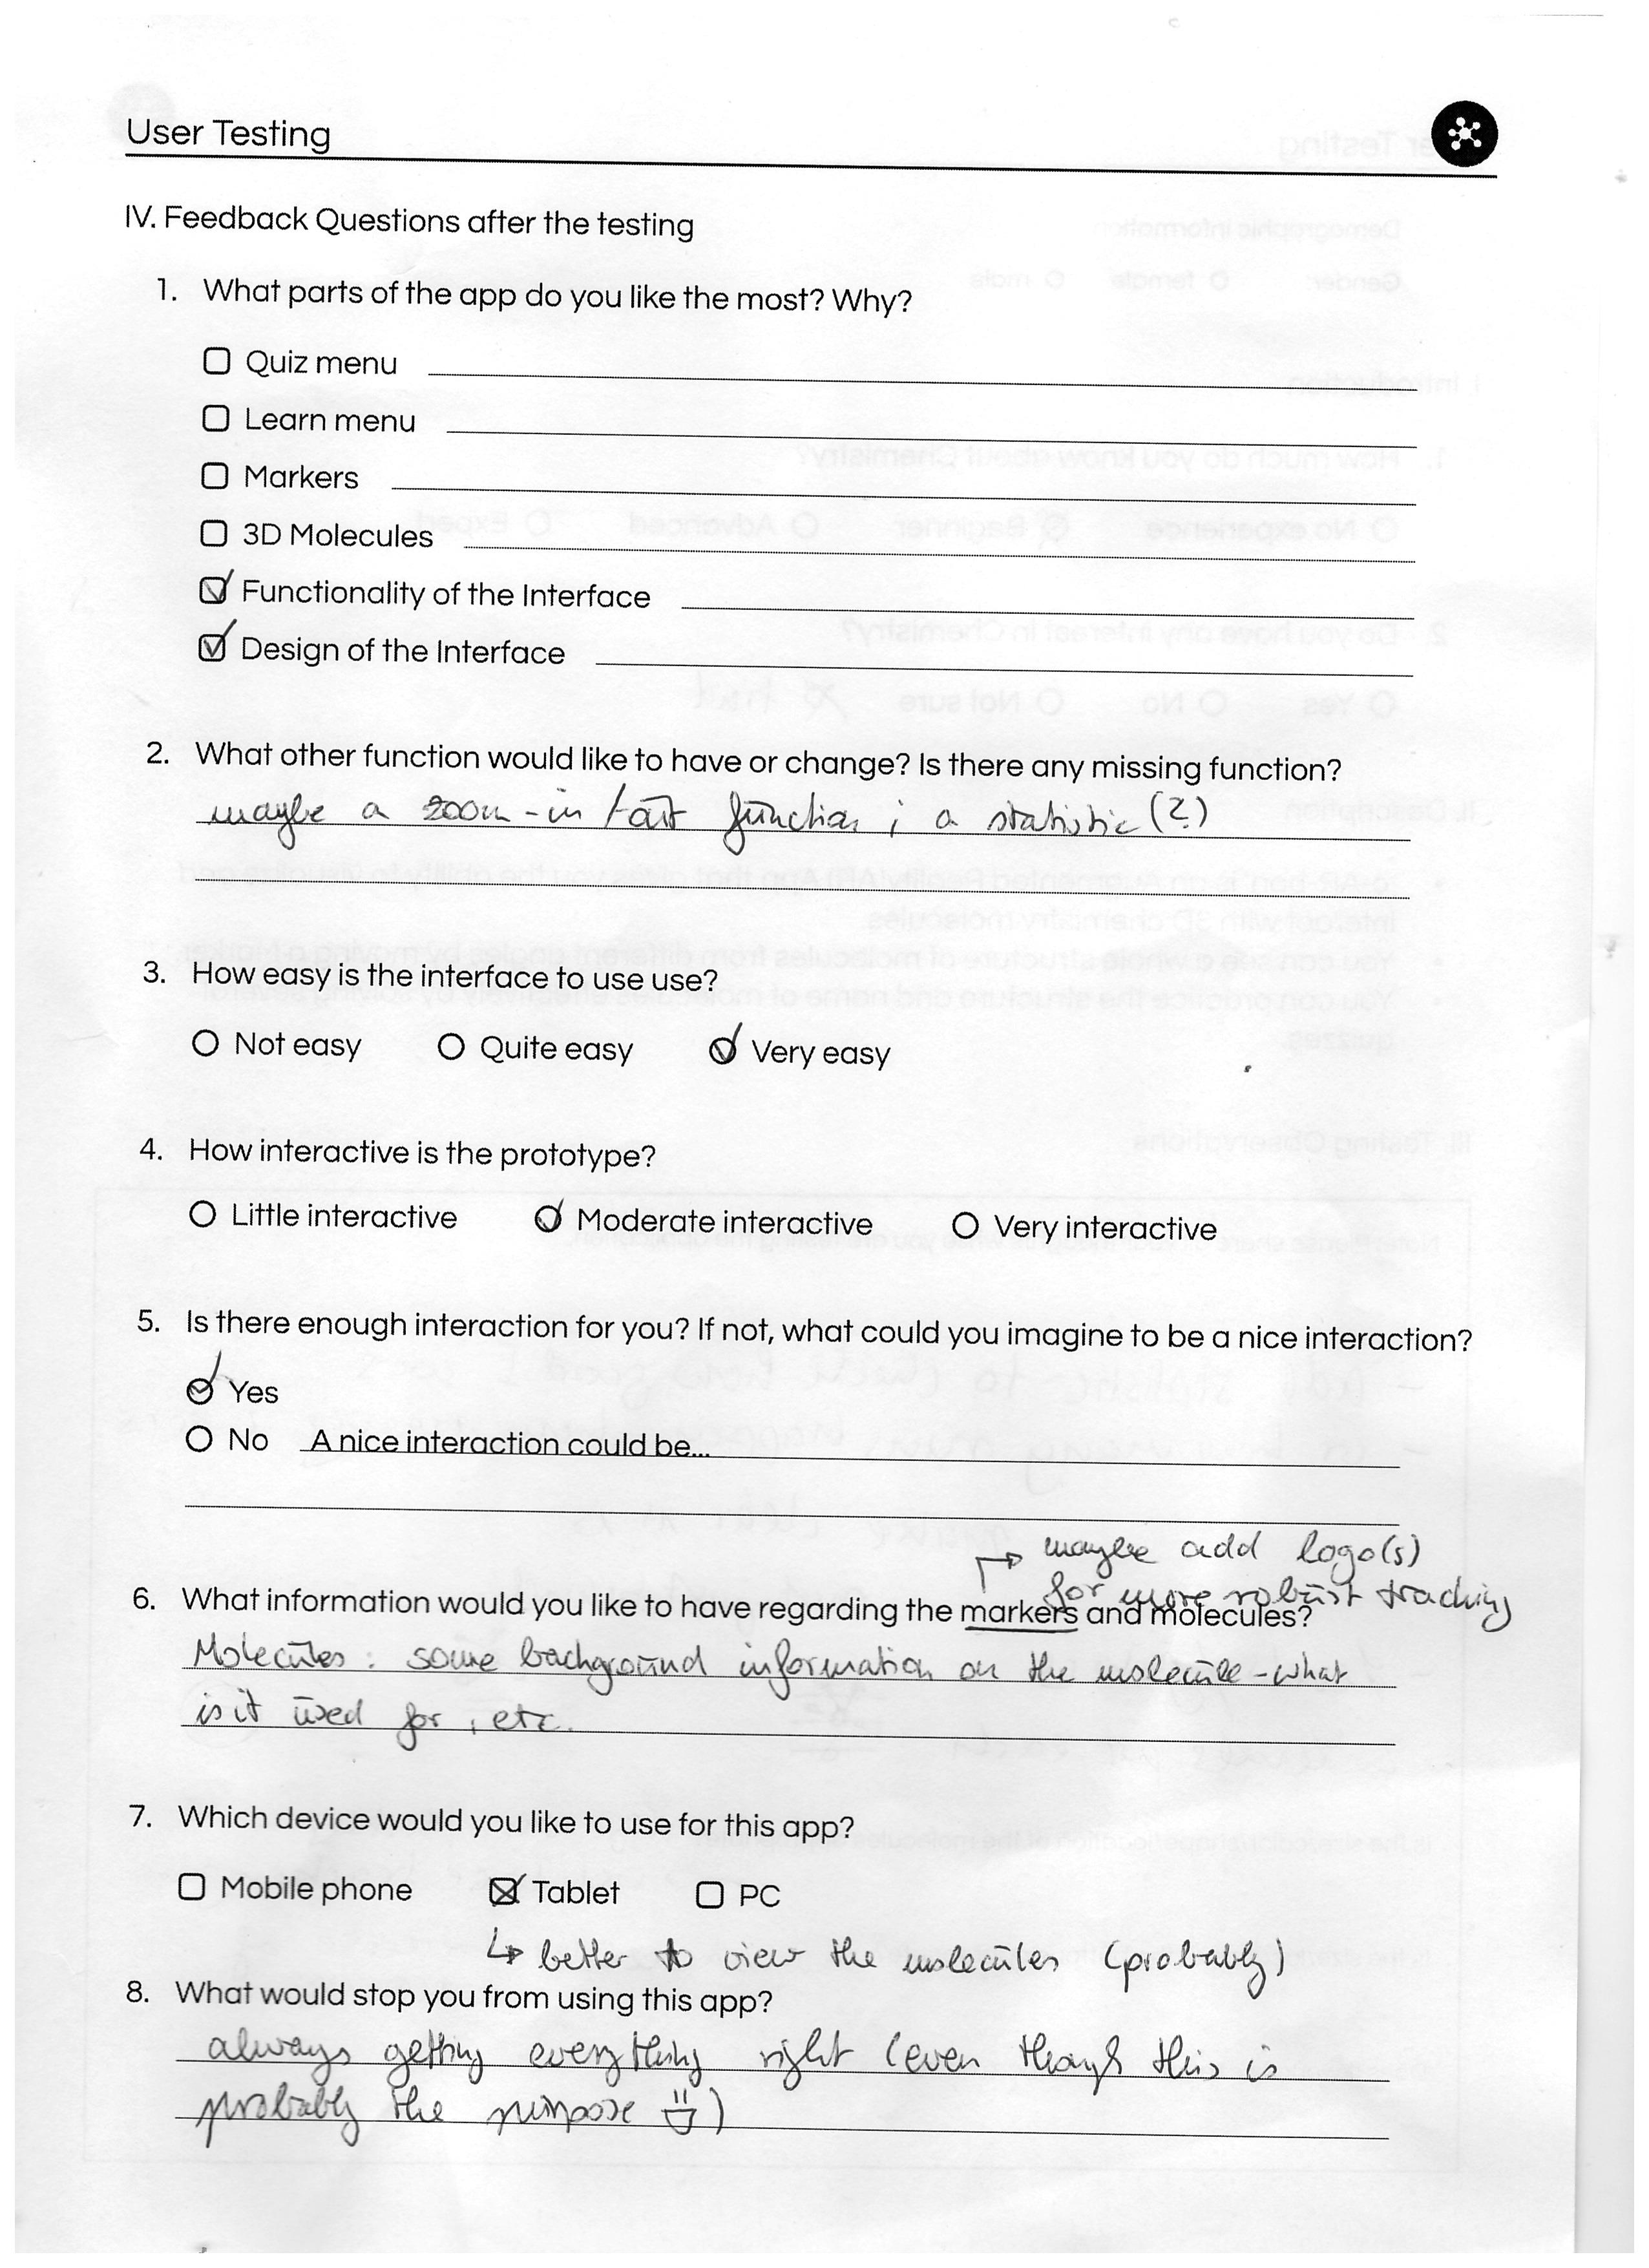 User Testing
IV. Feedback Questions after the testing
1. What parts of the app do you like the most? Why?
Quiz menu
Learn menu
Markers
3D Molecules
Functionality of the Interface
Design of the Interface
2. What other function would like to have or change? Is there any missing function?
maybe a zoom-in / out function ; a statistic (?)
3. How easy is the interface to use use?
Not easy Quite easy Very easy
4. How interactive is the prototype?
Little interactive Moderate interactive Very interactive
5. Is there enough interaction for you? If not, what could you imagine to be a nice interaction?
Yes
No A nice interaction could be...
maybe add logo(s)
for more robust tracking
6. What information would you like to have regarding the markers and molecules?
Molecules: some background information on the molecule - what
is it used for, etc.
7. Which device would you like to use for this app?
Mobile phone Tablet PC
↳ better to view the molecules (probably)
8. What would stop you from using this app?
always getting everything right (even though this is
probably the purpose )